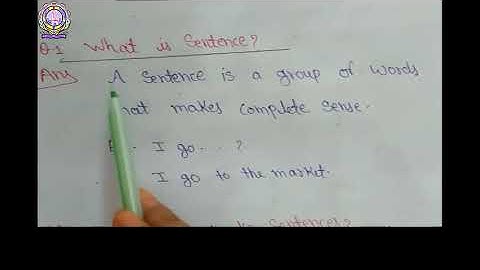 Q.1 What is Sentence?
Ans A Sentence is a group of words
that makes complete sense.
I go...?
I go to the market.
Sentences?